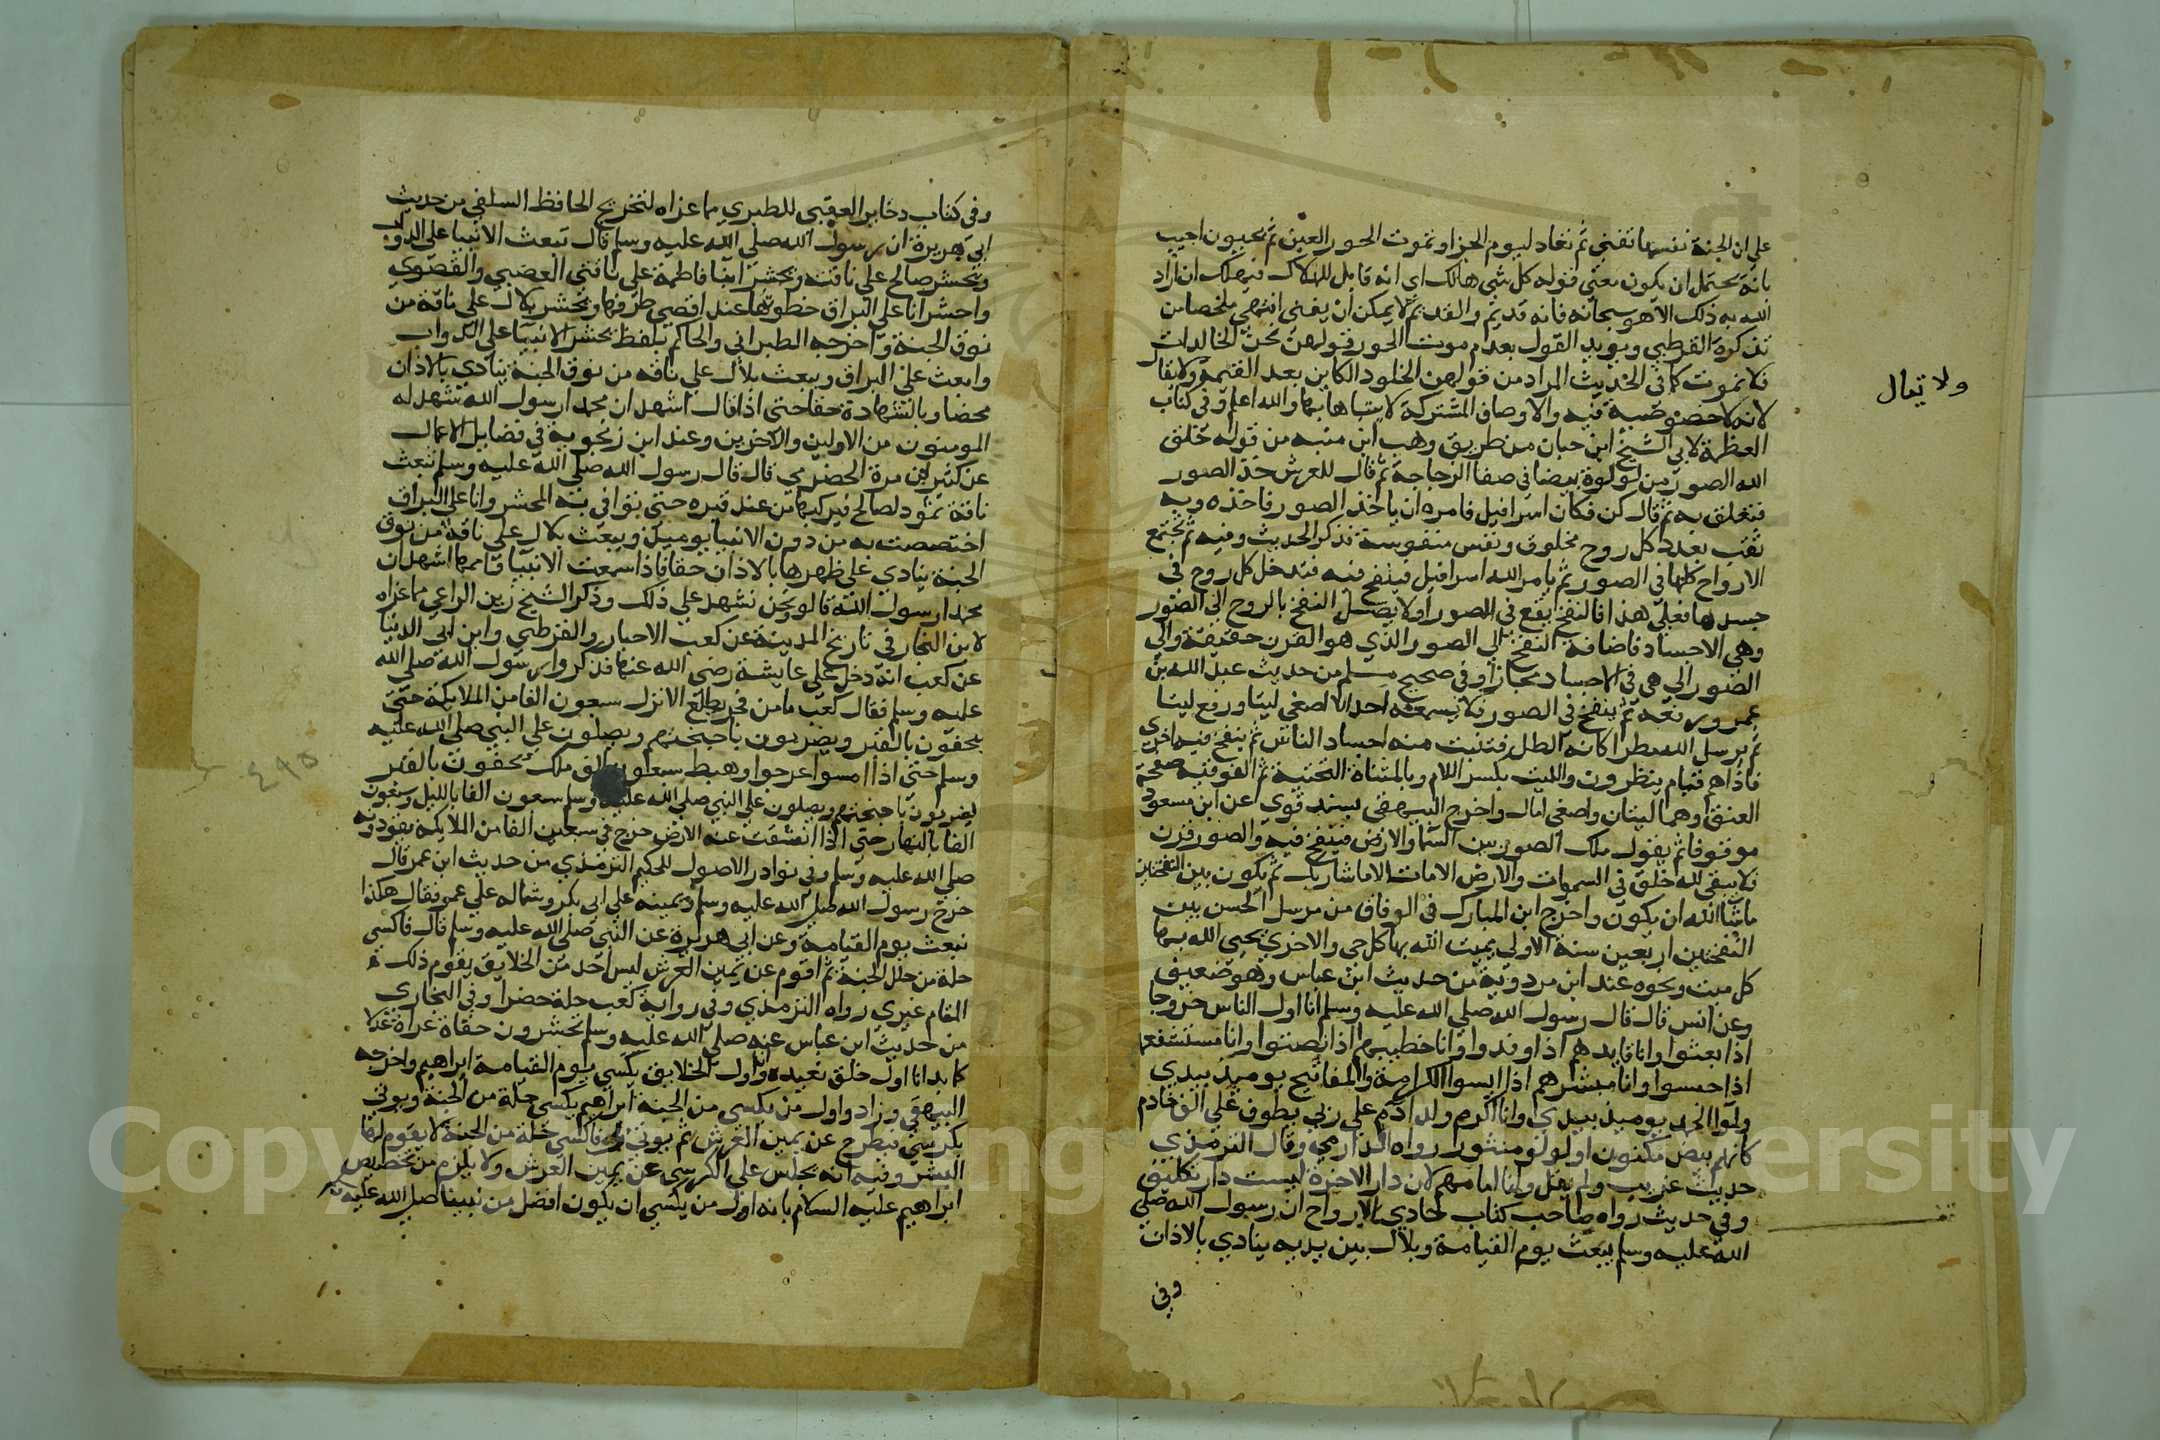 على ان الجنة نفسها تفنى ثم تعاد ليوم الجزا وتموت الحور العين ثم يحيون اجيب
بانه يحتمل ان يكون معنى قوله كل شي هالك اي انه قابل للهلاك فيهلك ان اراد
الله به ذلك الا هو سبحانه فانه قديم والقديم لا يمكن ان يفنى انتهى ملخصا من
تذكرة القرطبي ويويد القول بعدم موت الحور قولهن نحن الخالدات
فلا نموت كما في الحديث المراد من قولهن الخلود الكاين بعد القيمة ولا يقال
ولا يقال
لانه لا خصوصية فيه والاوصاف المشتركة لا يتباها بها والله اعلم وفي كتاب
العظمة لابي الشيخ ابن حبان من طريق وهب ابن منبه من قوله خلق
الله الصور من لولوة بيضا في صفا الزجاجة ثم قال للعرش خذ الصور
فتعلق به ثم قال كن فكان اسرافيل فامره ان ياخذ الصور فاخذه وبه
ثقب بعدد كل روح مخلوق ونفس منفوسة فذكر الحديث وفيه ثم تجتمع
الارواح كلها في الصور ثم يامر الله اسرافيل فينفخ فيه فتدخل كل روح في
جسدها فعلى هذا فالنفخ يقع في الصور اولا يصل النفخ بالروح الى الصور
وهي الاجساد فاضافة النفخ الى الصور الذي هو القرن حقيقة والى
الصور التي هي في الاجساد مجازا وفي صحيح مسلم من حديث عبد الله بن
عمرو رفعه ثم ينفخ في الصور فلا يسمعه احد الا اصغى ليتا ورفع ليتا
ثم يرسل الله مطرا كانه الطل فتنبت منه اجساد الناس ثم ينفخ فيه اخرى
فاذا هم قيام ينظرون والليت بكسر اللام وبالمثناة التحتية ثم الفوقية صفحة
العنق وهما ليتان واصغى امال واخرج البيهقي بسند قوي عن ابن مسعود
موقوفا ثم يقول ملك الصور بين السما والارض فينفخ فيه والصور قرن
فلا يبقى لله خلق في السموات والارض الا مات الا ما شا ربك ثم يكون بين النفختين
ما شا الله ان يكون واخرج ابن المبارك في الرقاق من مرسل الحسن بين
النفختين اربعين سنة الاولى يميت الله بها كل حي والاخرى يحيي الله بها
كل ميت ونحوه عند ابن مردوية من حديث ابن عباس وهو ضعيف
وعن انس قال قال رسول الله صلى الله عليه وسلم انا اول الناس خروجا
اذا بعثوا وانا قايدهم اذا وفدوا وانا خطيبهم اذا انصتوا وانا مستشفعهم
اذا حبسوا وانا مبشرهم اذا ايسوا الكرامة والمفاتيح يوميذ بيدي
ولوا الحمد يوميذ بيدي وانا اكرم ولد ادم على ربي يطوف علي الف خادم
كانهم بيض مكنون او لولو منثور رواه الدارمي وقال الترمذي
حديث غريب ولم يقل وانا امامهم لان دار الاخرة ليست دار تكليف
وفي حديث رواه صاحب كتاب حادي الارواح ان رسول الله صلى
الله عليه وسلم يبعث يوم القيامة وبلال بين يديه ينادي بالاذان
وفي
وفي كتاب دخاير العقبى للطبري مما عزاه لتخريج الحافظ السلفي من حديث
ابي هريرة ان رسول الله صلى الله عليه وسلم قال تبعث الانبيا على الدواب
ويحشر صالح على ناقته ويحشر ابنا فاطمة على ناقتي العضبي والقصوى
واحشر انا على البراق خطوتها عند اقصى طرفها ويحشر بلال على ناقة من
نوق الجنة واخرجه الطبراني والحاكم بلفظ يحشر الانبيا على الدواب
وابعث على البراق ويبعث بلال على ناقة من نوق الجنة ينادي بالاذان
محضا وبالشهادة حقا حتى اذا قال اشهد ان محمدا رسول الله شهد له
المومنون من الاولين والاخرين وعند ابن زنجوية في فضايل الاعمال
عن كثير بن مرة الحضرمي قال قال رسول الله صلى الله عليه وسلم تبعث
ناقة ثمود لصالح فيركبها من عند قبره حتى توافي به المحشر وانا على البراق
اختصصت به من دون الانبيا يوميذ ويبعث بلال على ناقة من نوق
الجنة ينادي على ظهرها بالاذان حقا فاذا سمعت الانبيا واممها اشهد ان
محمدا رسول الله قالو ونحن نشهد على ذلك وذكر الشيخ زين المراغي مما عزاه
لابن النجار في تاريخ المدينة عن كعب الاحبار والقرطبي وابن ابي الدنيا
عن كعب انه دخل على عايشة رضي الله عنها فذكروا رسول الله صلى الله
عليه وسلم فقال كعب ما من فجر يطلع الا نزل سبعون الفا من الملايكة حتى
يحفون بالقبر ويضربون باجنحتهم ويصلون على النبي صلى الله عليه
وسلم حتى اذا امسوا عرجوا وهبط سبعون الف ملك يحفون بالقبر
يضربون باجنحتهم ويصلون على النبي صلى الله عليه وسلم سبعون الفا بالليل وسبعون
الفا بالنهار حتى اذا انشقت عنه الارض خرج في سبعين الفا من الملايكة يفودونه
صلى الله عليه وسلم وفي نوادر الاصول للحكيم الترمذي من حديث ابن عمر قال
خرج رسول الله صلى الله عليه وسلم ويمينه على ابي بكر وشماله على عمر فقال هكذا
نبعث يوم القيامة وعن ابي هريرة عن النبي صلى الله عليه وسلم قال فاكسى
حلة من حلل الجنة ثم اقوم عن يمين العرش ليس احد من الخلايق يقوم ذلك
المقام غيري رواه الترمذي وفي رواية كعب حلة خضرا وفي البخاري
من حديث ابن عباس عنه صلى الله عليه وسلم تحشرون حفاة عراة غرلا
كما بدانا اول خلق نعيده واول الخلايق يكسى يوم القيامة ابراهيم واخرجه
البيهقي وزاد واول من يكسى من الجنة ابراهيم يكسى حلة من الجنة ويوتى
بكرسي فيطرح عن يمين العرش ثم يوتى بي فاكسى حلة من الجنة لا يقوم لها
البشر وفيه انه يجلس على الكرسي عن يمين العرش ولا يلزم من تخصيص
ابراهيم عليه السلام بانه اول من يكسى ان يكون افضل من نبينا صلى الله عليه
Copy ng ersity